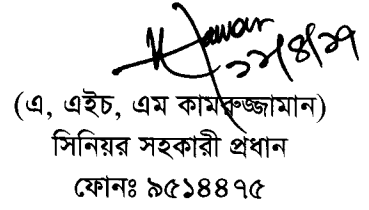 ১২/৪/১৭
(এ, এইচ, এম কামরুজ্জামান)
সিনিয়র সহকারী প্রধান
ফোনঃ ৯৫১৪৪৭৫